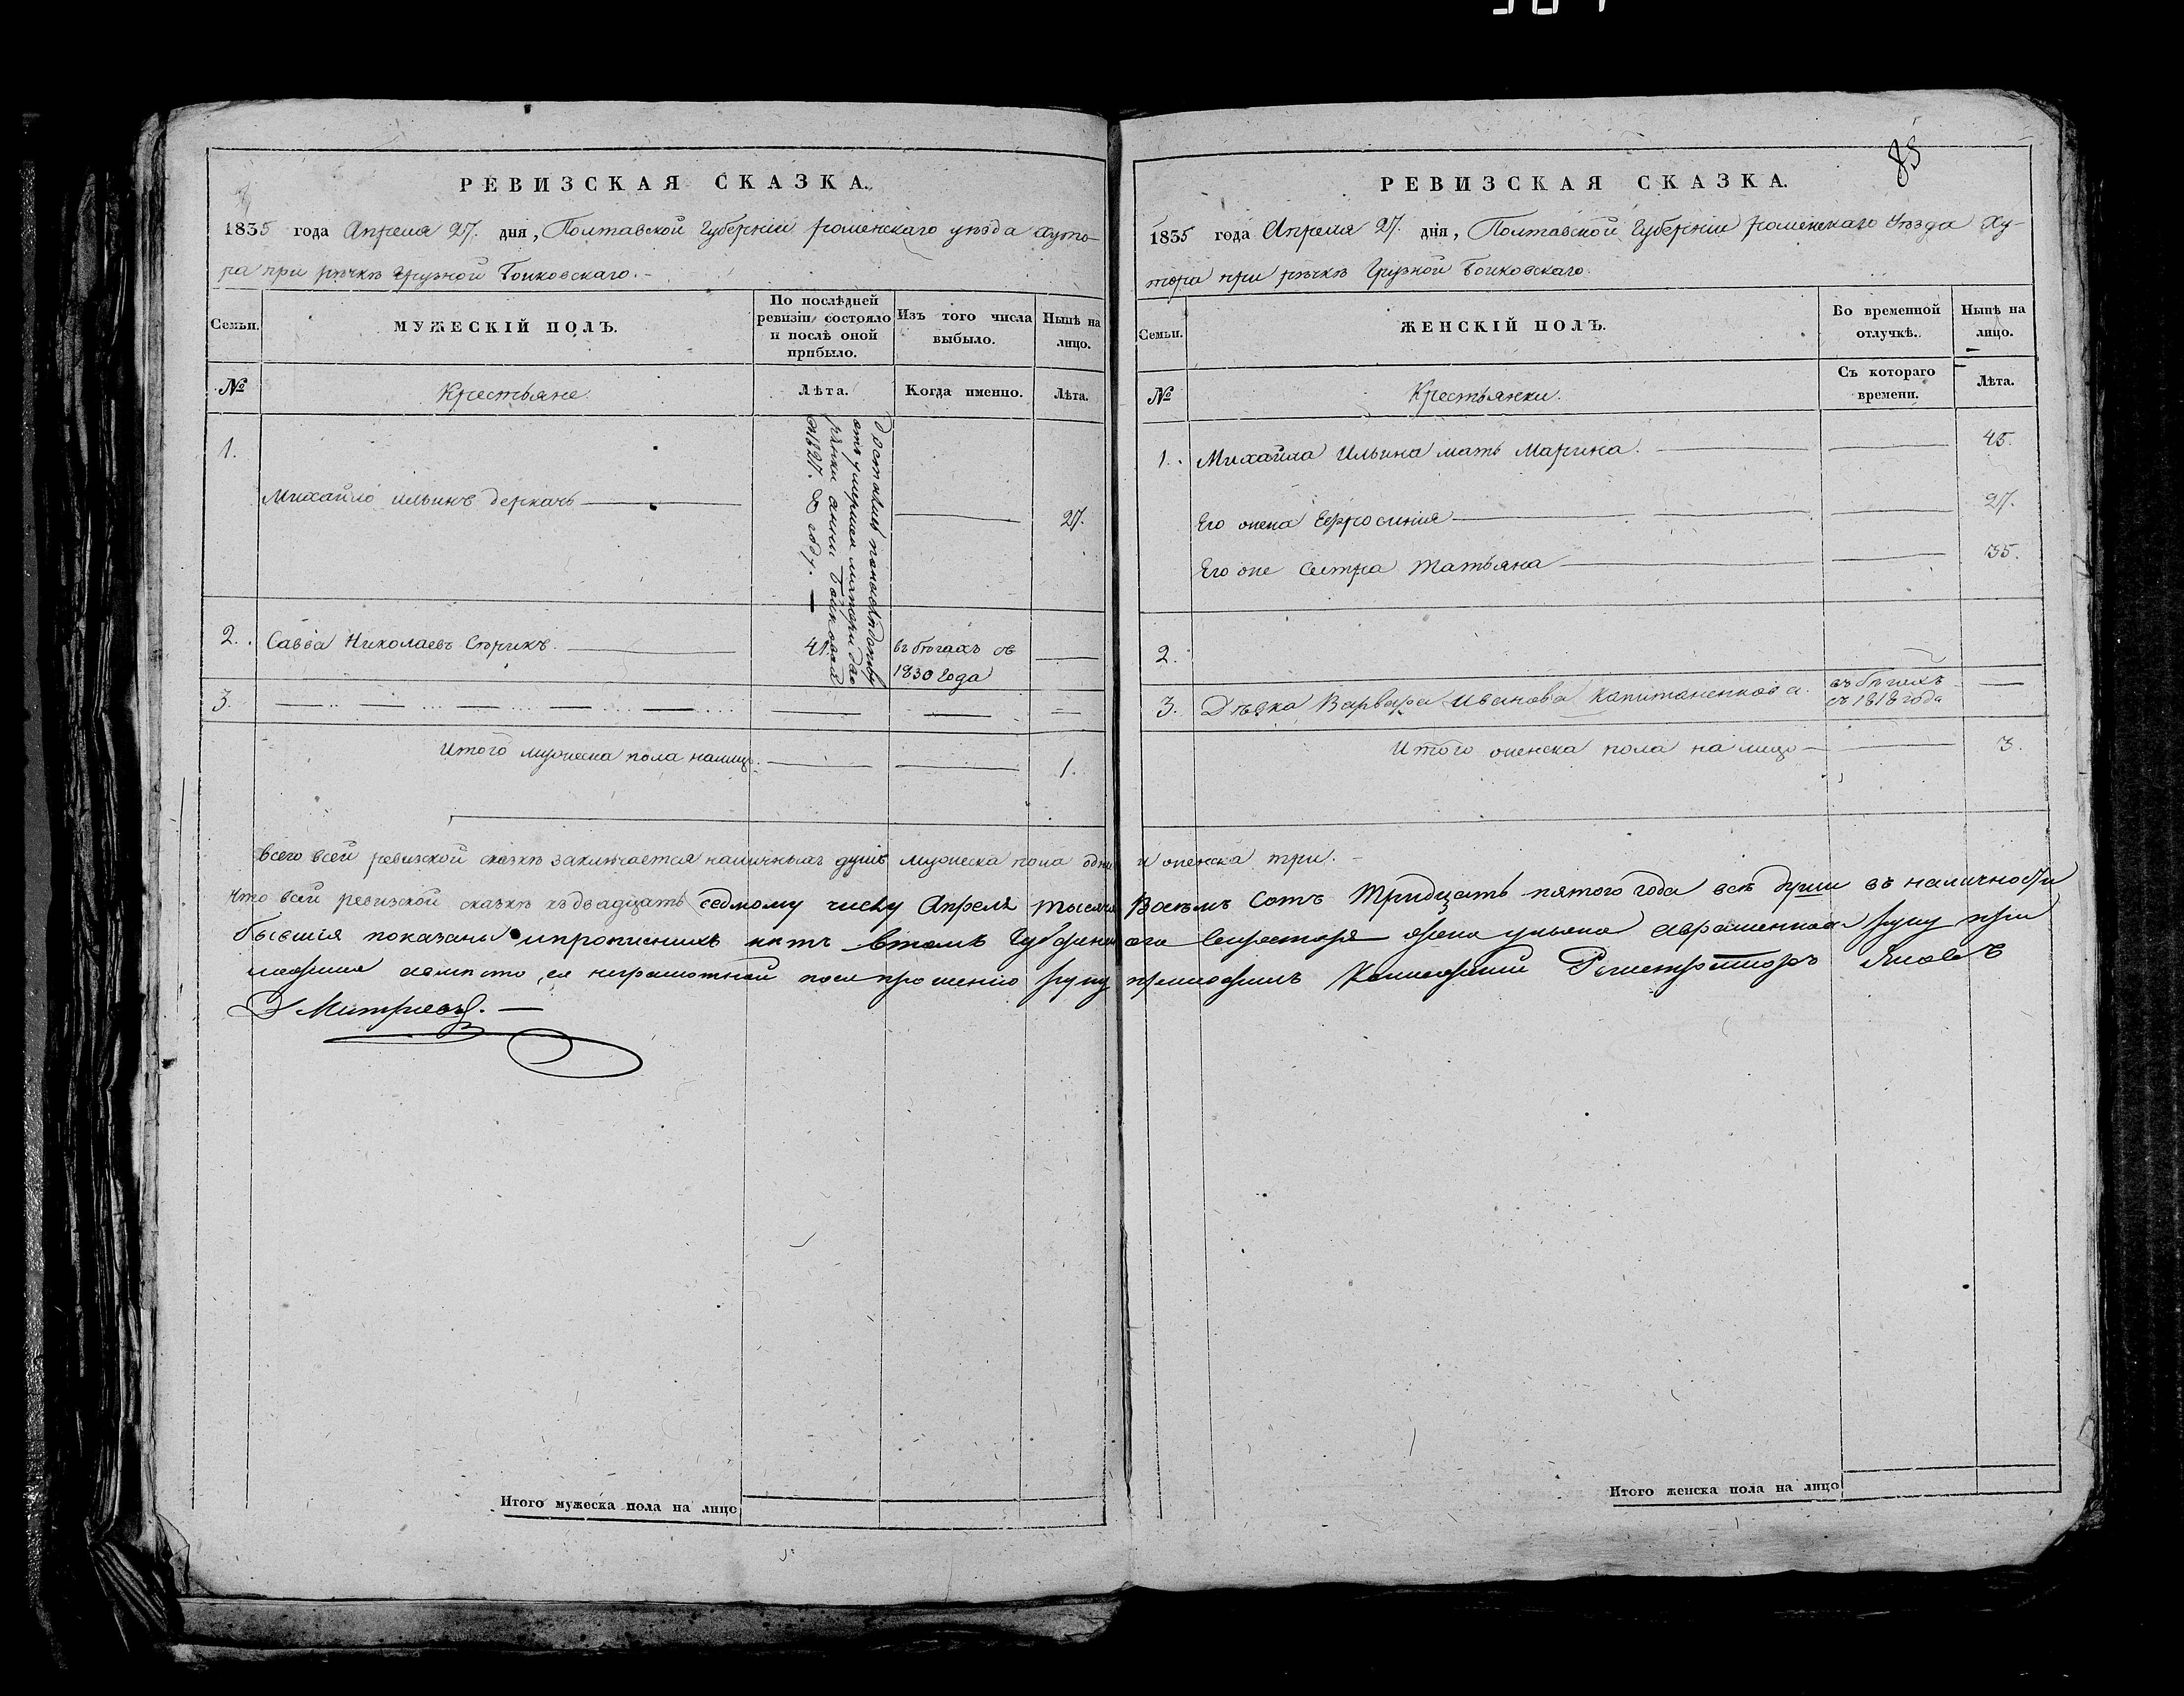 РЕВИЗСКАЯ СКАЗКА.
1835 года Апреля 27. дня, Полтавской Губерніи роменскаго уѣзда хуто-
ра при рѣчкѣ Грузкой Боиковскаго.
Семьи.
МУЖЕСКІЙ ПОЛЪ.
По послѣдней
ревизіи состояло
и послѣ оной
прибыло.
Изъ того числа
выбыло.
Нынѣ на
лицо.
№
Крестьяне.
Лѣта.
Когда именно.
Лѣта.
1.
Михайло ильинъ деркачь
достались
отъ умершей матери
анни Бойковой
27.
2.
Савва Николаевъ Сѣрикъ.
41.
въ бѣгахъ съ
1830 года
3.
Итого мужеска пола налицо.
1.
РЕВИЗСКАЯ СКАЗКА.
85
1835 года Апреля 27. дня, Полтавской Губерніи роменскаго уѣзда Ху-
тора при рѣчкѣ Грузкой Боиковскаго.
Семьи.
ЖЕНСКІЙ ПОЛЪ.
Во временной
отлучкѣ.
Нынѣ на
лицо.
№
Крестьянки.
Съ котораго
времени.
Лѣта.
1.
Михайла Ильина мать Марина.
45.
Его жена Ефросинія
27.
Его же сестра Татьяна
35.
2.
3.
Дѣвка Варвара Иванова Капитаненкова.
въ бѣгахъ
съ 1818 года
Итого женска пола на лицо
3.
Всего всей ревизской сказкѣ заключается наличныхъ душъ мужеска пола одна и женска три.
что всей ревизской сказкѣ къ двадцать седмому числу Апреля тысяча Восемь Сотъ Тридцать пятого года всѣ души въ наличности
бывшія показаны и прописныхъ нетъ втомъ Губернского Секретаря жена ульяна руку при
ложила а вместо ея неграмотной поея прошенію руку приложилъ Колежский Регистраторъ Яковъ
Дмитриевъ.
Итого мужеска пола на лицо
Итого женска пола на лицо